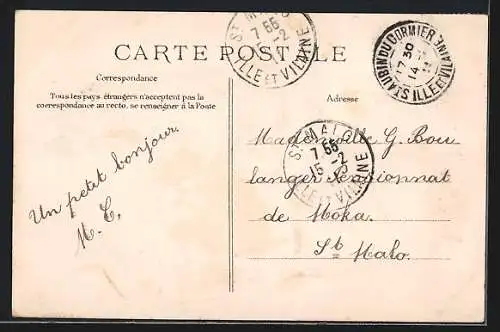 CARTE POSTALE
Correspondance
Tous les pays étrangers n'acceptent pas la
correspondance au recto, se renseigner à la Poste
Adresse
ST MALO
7 55
15-2
ILLE ET VILAINE
ST AUBIN DU CORMIER
17 30
14
ILLE ET VILAINE
ST MALO
7 55
15-2
ILLE ET VILAINE
Un petit bonjour.
M. C.
Mademoiselle G. Bou
langer Pensionnat
de Moka.
St Malo.